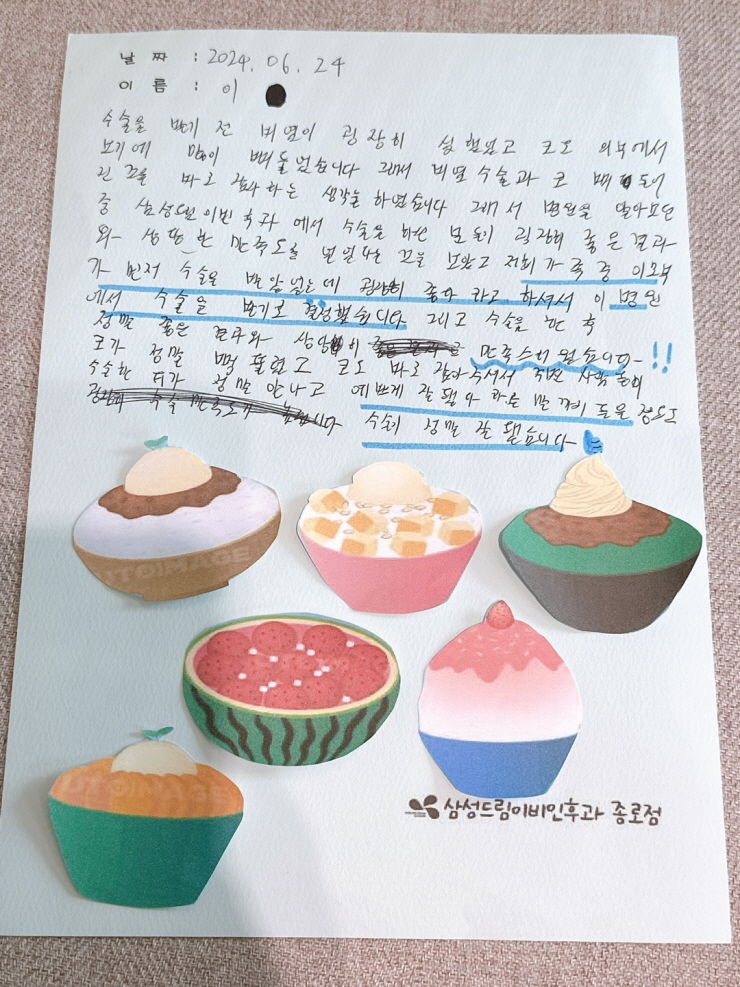 날 짜 : 2024. 06. 24
이 름 : 이
수술을 받기 전 비염이 굉장히 심했었고 코도 외부에서
보기에 많이 삐뚤었습니다 그래서 비염 수술과 코 삐뚤어
진 코를 바로 잡아 하는 생각을 하였습니다 그래서 병원을 알아보던
중 삼성드림이빈후과에서 수술을 하신 분들이 굉장히 좋은 결과
와 상당한 만족도를 보았고 저희 가족 중 이모부
가 먼저 수술을 받았었는데 굉장히 좋다 라고 하셔서 이 병원
에서 수술을 받기로 결정했습니다 그리고 수술을 한 후
정말 좋은 결과와 상당히 만족스러웠습니다 !!
코가 정말 뻥 뚫렸고 코도 바로 잡아주셔서 직접 사람들이
수술한 티가 정말 안나고 예쁘게 잘 됐다 하는 말 까지 들을 정도로
수술이 정말 잘 됐습니다
삼성드림이비인후과 종로점